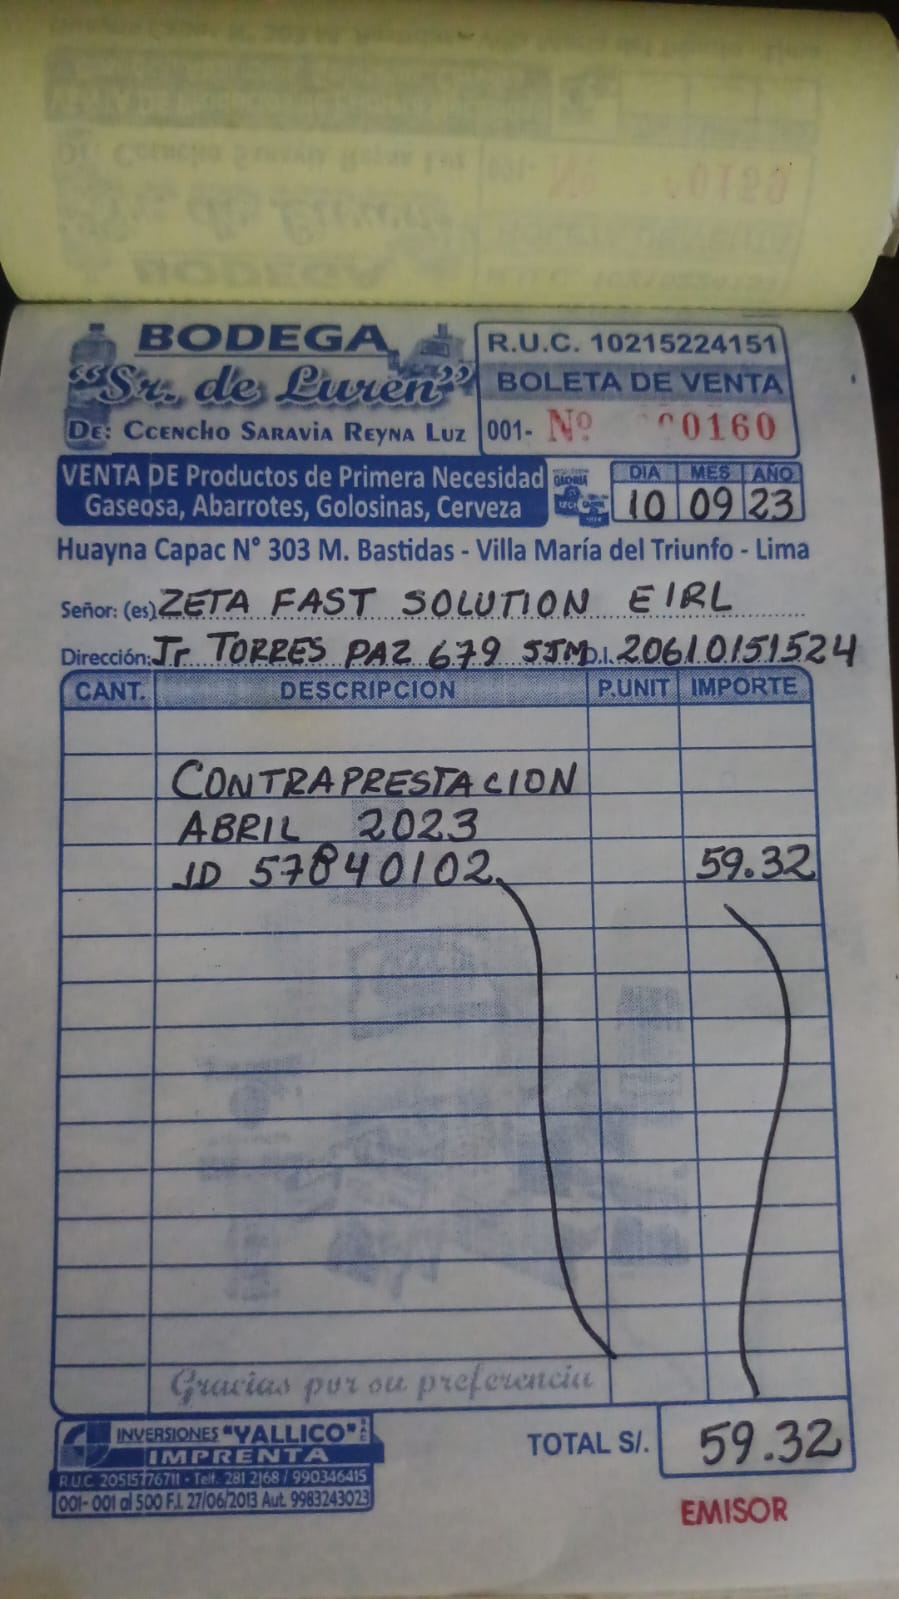 BODEGA
"Sr. de Luren"
DE: CCENCHO SARAVIA REYNA LUZ
R.U.C. 10215224151
BOLETA DE VENTA
001- Nº 000160
VENTA DE Productos de Primera Necesidad
Gaseosa, Abarrotes, Golosinas, Cerveza
GLORIA
DIA MES AÑO
10 09 23
Huayna Capac N° 303 M. Bastidas - Villa María del Triunfo - Lima
Señor: (es) ZETA FAST SOLUTION EIRL
Dirección: Jr TORRES PAZ 679 SJM D.I. 20610151524
CANT. DESCRIPCION P.UNIT IMPORTE
CONTRAPRESTACION
ABRIL 2023
ID 57840102. 59.32
Gracias por su preferencia
INVERSIONES "YALLICO" SAC
IMPRENTA
R.U.C. 20515776711 - Telf. 281 2168 / 990346415
001- 001 al 500 F.I. 27/06/2013 Aut. 9983243023
TOTAL S/. 59.32
EMISOR